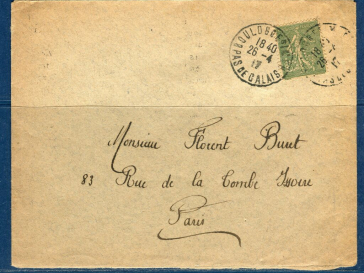 BOULOGNE
18 40
26 - 4
17
PAS DE CALAIS
Monsieur Florent Buret
83 Rue de la Tombe Issoire
Paris